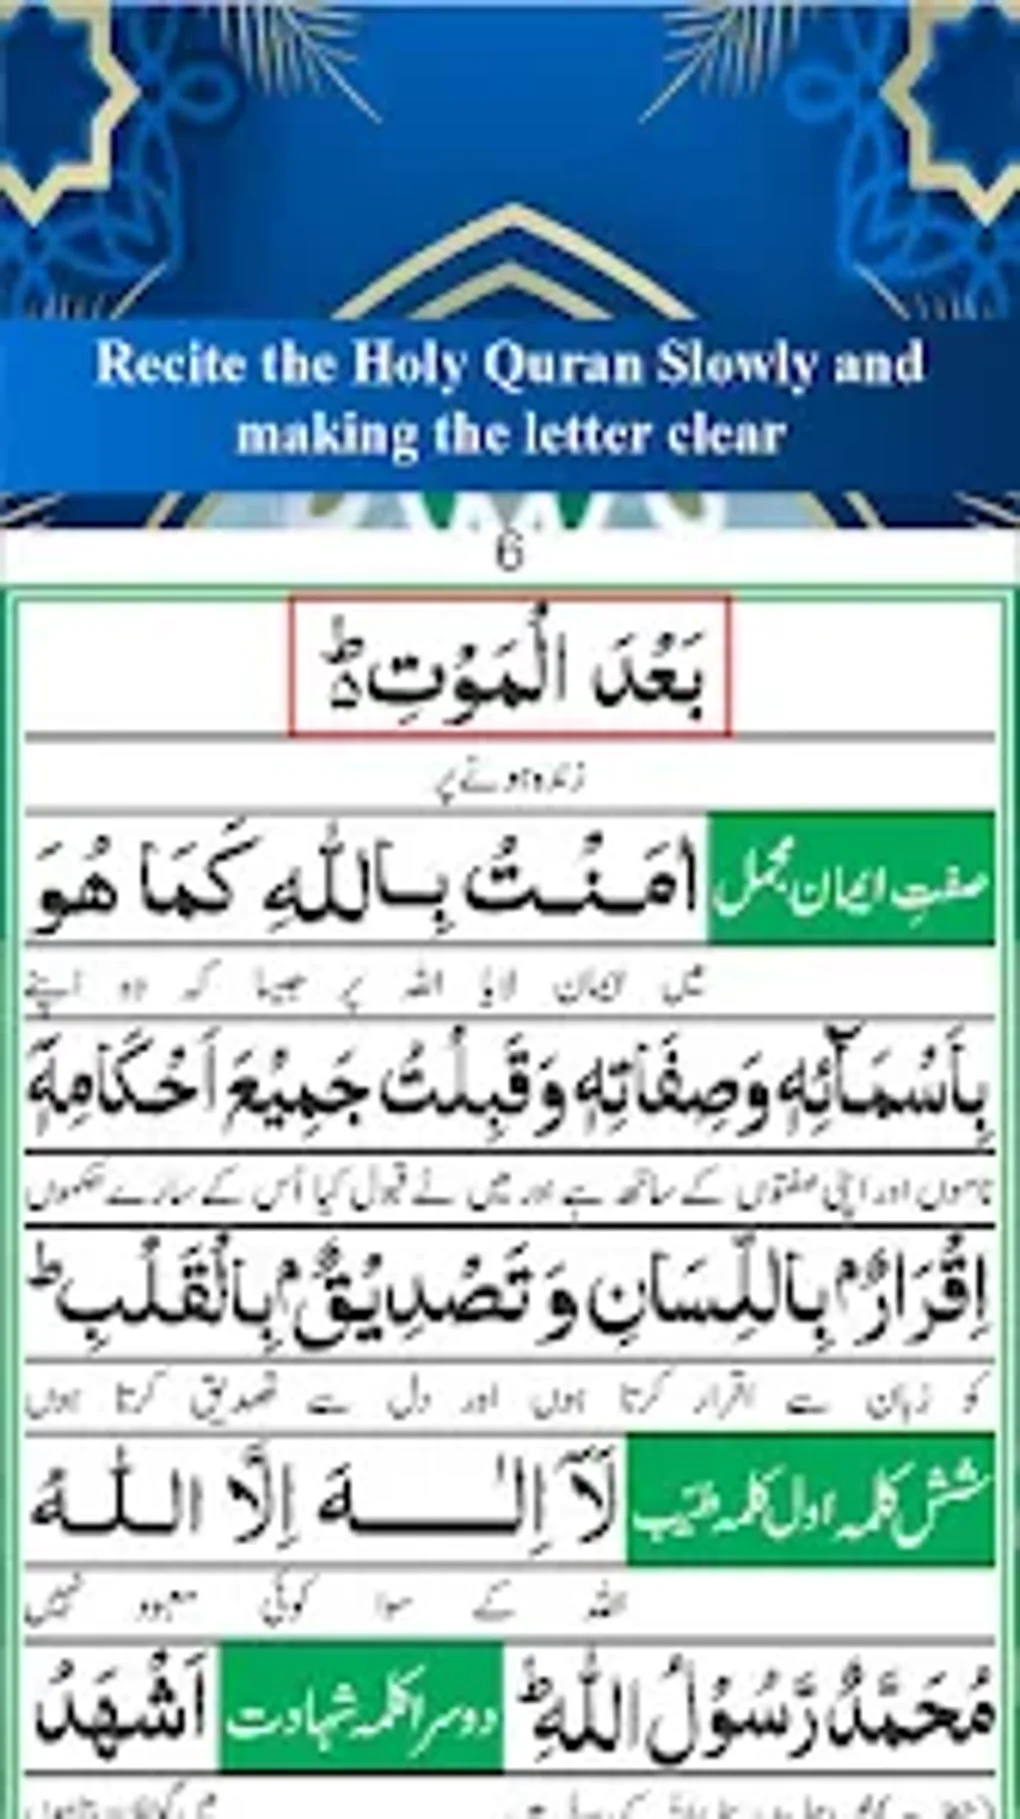 Recite the Holy Quran Slowly and
making the letter clear
6
بَعْدَ الْمَوْتِ ؕ
زندہ ہونے پر
صفتِ ایمان مجمل اٰمَنْتُ بِاللّٰهِ كَمَا هُوَ
میں ایمان لایا اللہ پر جیسا کہ وہ اپنے
بِاَسْمَآئِهٖ وَصِفَاتِهٖ وَقَبِلْتُ جَمِيْعَ اَحْكَامِهٖ
ناموں اور اپنی صفتوں کے ساتھ ہے اور میں نے قبول کیا اُس کے سارے حکموں
اِقْرَارٌۢ بِاللِّسَانِ وَ تَصْدِيْقٌۢ بِالْقَلْبِ ؕ
کو زبان سے اقرار کرتا ہوں اور دل سے تصدیق کرتا ہوں
شش کلمہ اول کلمہ طیّب لَآ اِلٰهَ اِلَّا اللّٰهُ
اللہ کے سوا کوئی معبود نہیں
مُحَمَّدٌ رَّسُوْلُ اللّٰهِ ؕ دوسرا کلمہ شہادت اَشْهَدُ